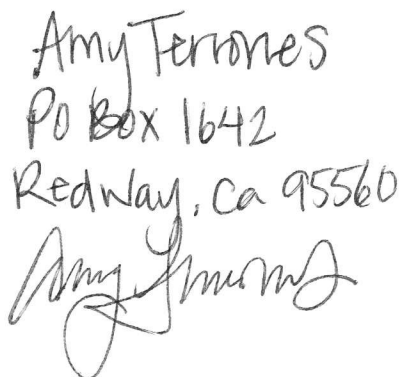 Amy Terrones
PO Box 1642
Redway, Ca 95560
Amy Terrones